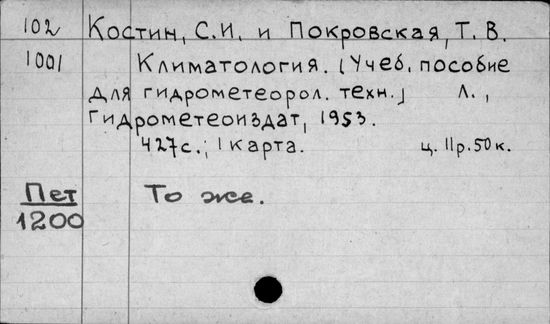 102 Костин, С.И. и Покровская, Т.В.
1001 Климатология. [Учеб. пособие
для гидрометеорол. техн.] Л.,
Гидрометеоиздат, 1953.
427с.; 1 карта. ц. 11р.50к.
Пет То же.
1200